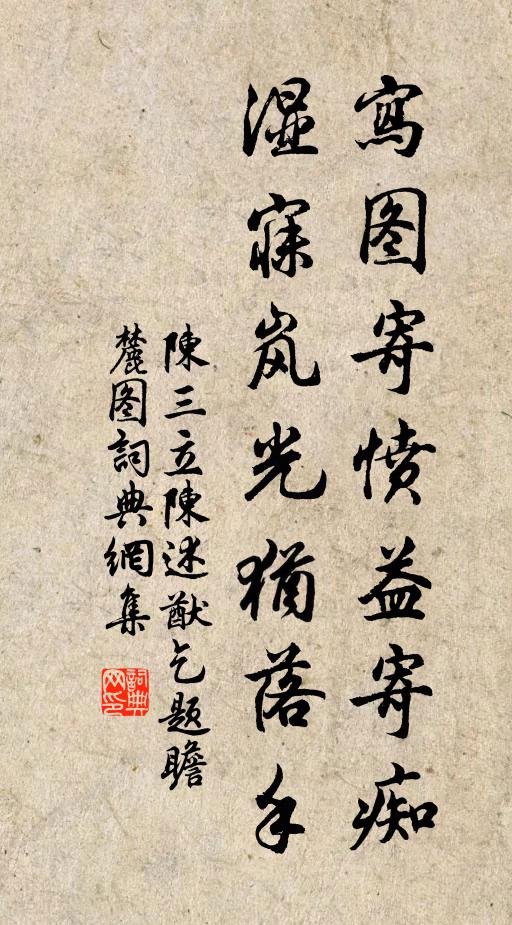 寫图寄憤益寄痴
湿寐岚光猶落手
陳三立陳述猷乞題瞻
麓图詞典網集
詞典网印